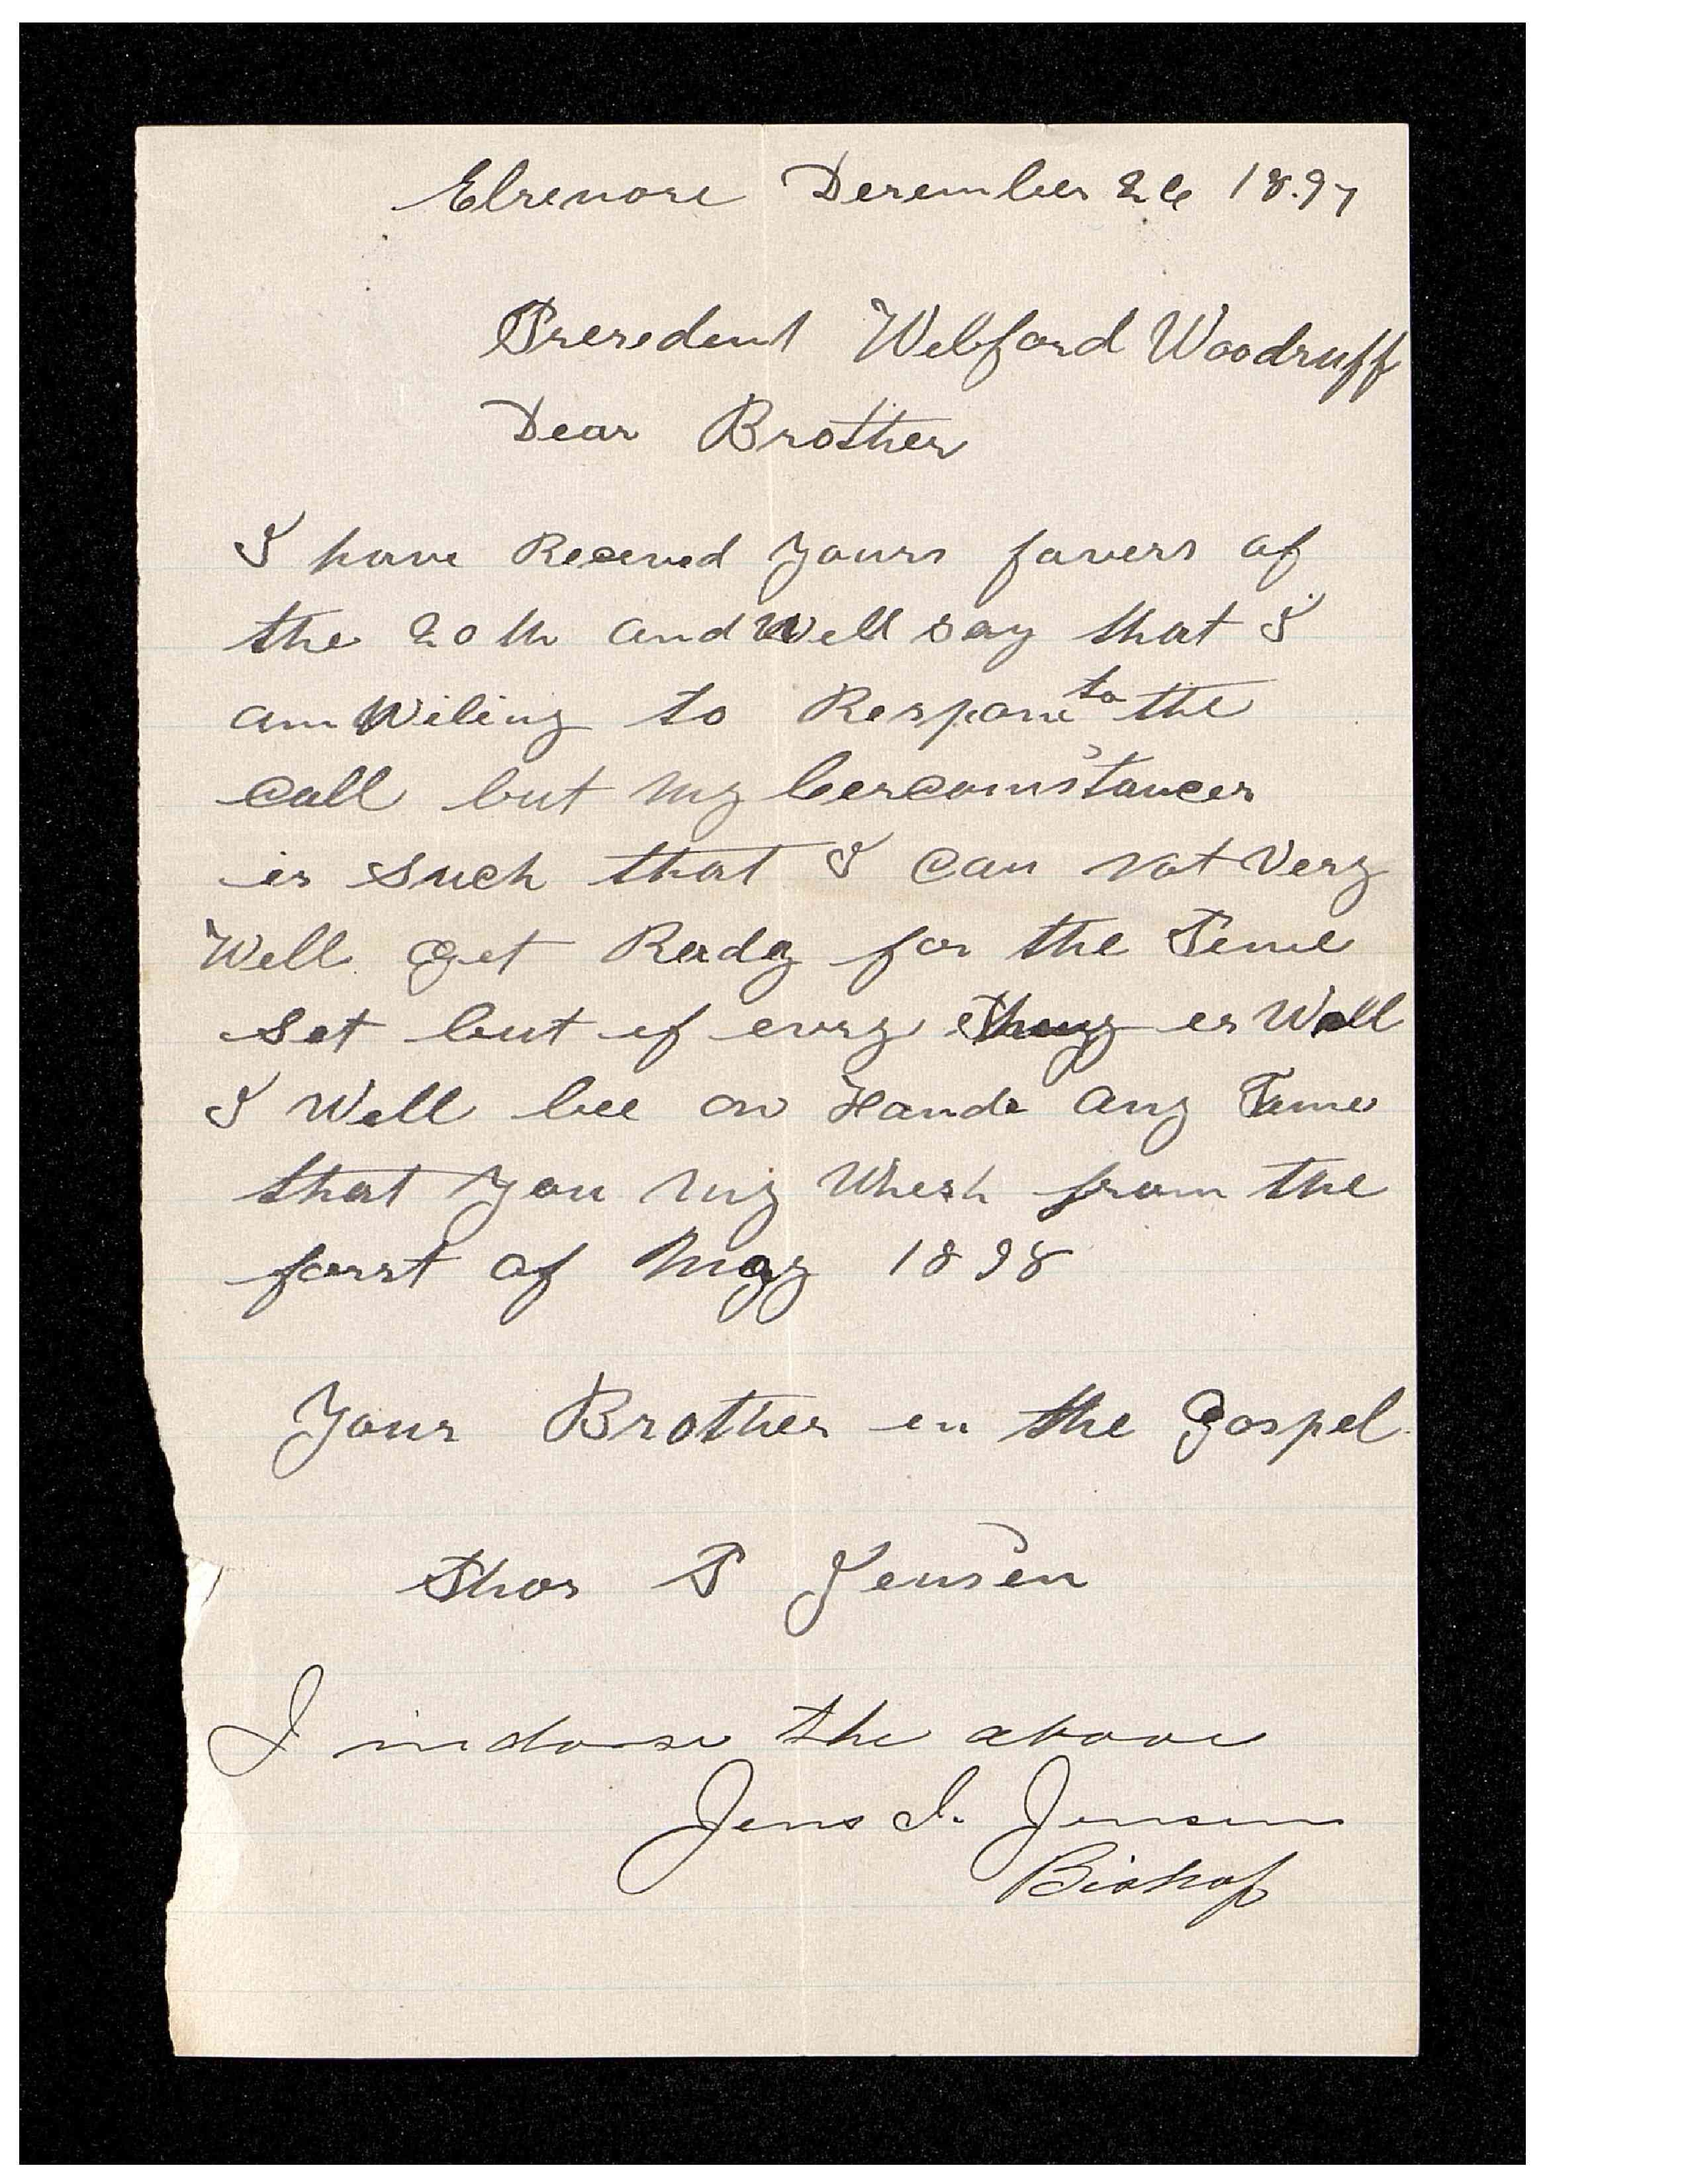 Elsenore Desember 26 1897
Presedent Welford Woodruff
Dear Brother
I have Receved yours favers of
the 20th and Well say that I
am Wiling to Respone to the
Call but my Cercomstances
is such that I Can not very
Well get Redy for the Teme
set but if evry Thing es Well
I Well bee on Hande any Teme
that you my Whesh from the
forst of May 1898
Your Brother en the Gospel
Thos P Jensen
I indorse the above
Jens I. Jensen
Bishop